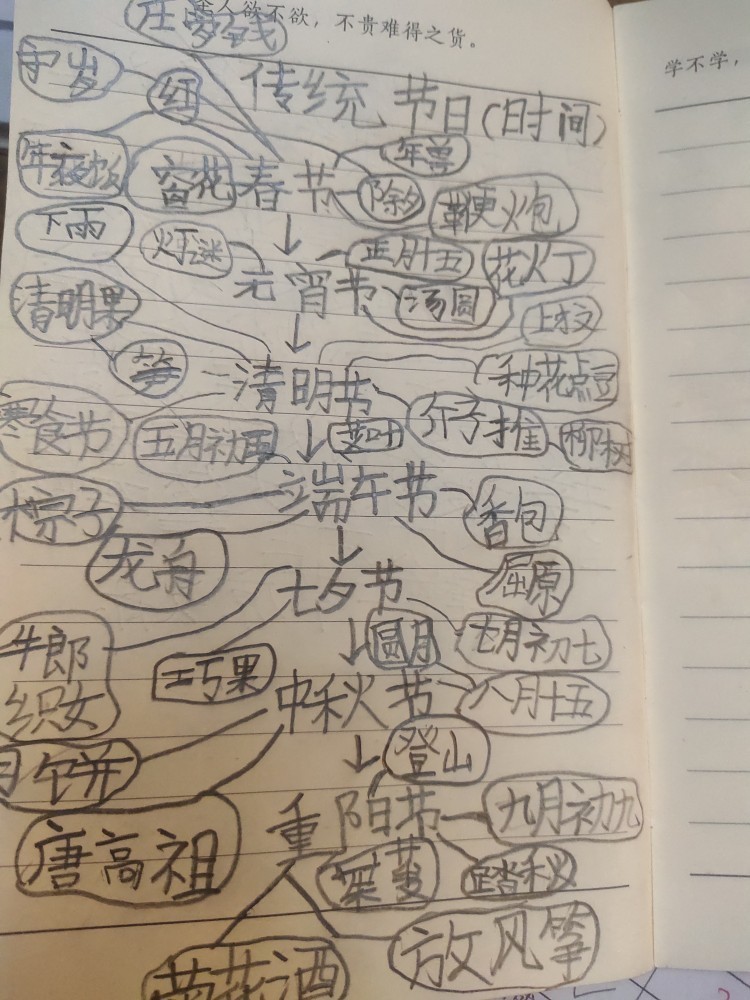 人欲不欲，不贵难得之货。
学不学，
压岁钱
守岁
红
传统节日(时间)
年夜饭
窗花
春节
年兽
除夕
鞭火包
下雨
灯谜
元宵节
正月十五
花火丁
汤圆
清明果
上坟
笋
清明节
种花点豆
寒食节
五月初五
艾叶
介子推
柳树
端午节
粽子
香包
龙舟
屈原
七夕节
牛郎
织女
巧果
圆月
七月初七
中秋节
八月十五
月饼
登山
重阳节
九月初九
唐高祖
茱萸
踏秋
菊花酒
放风筝